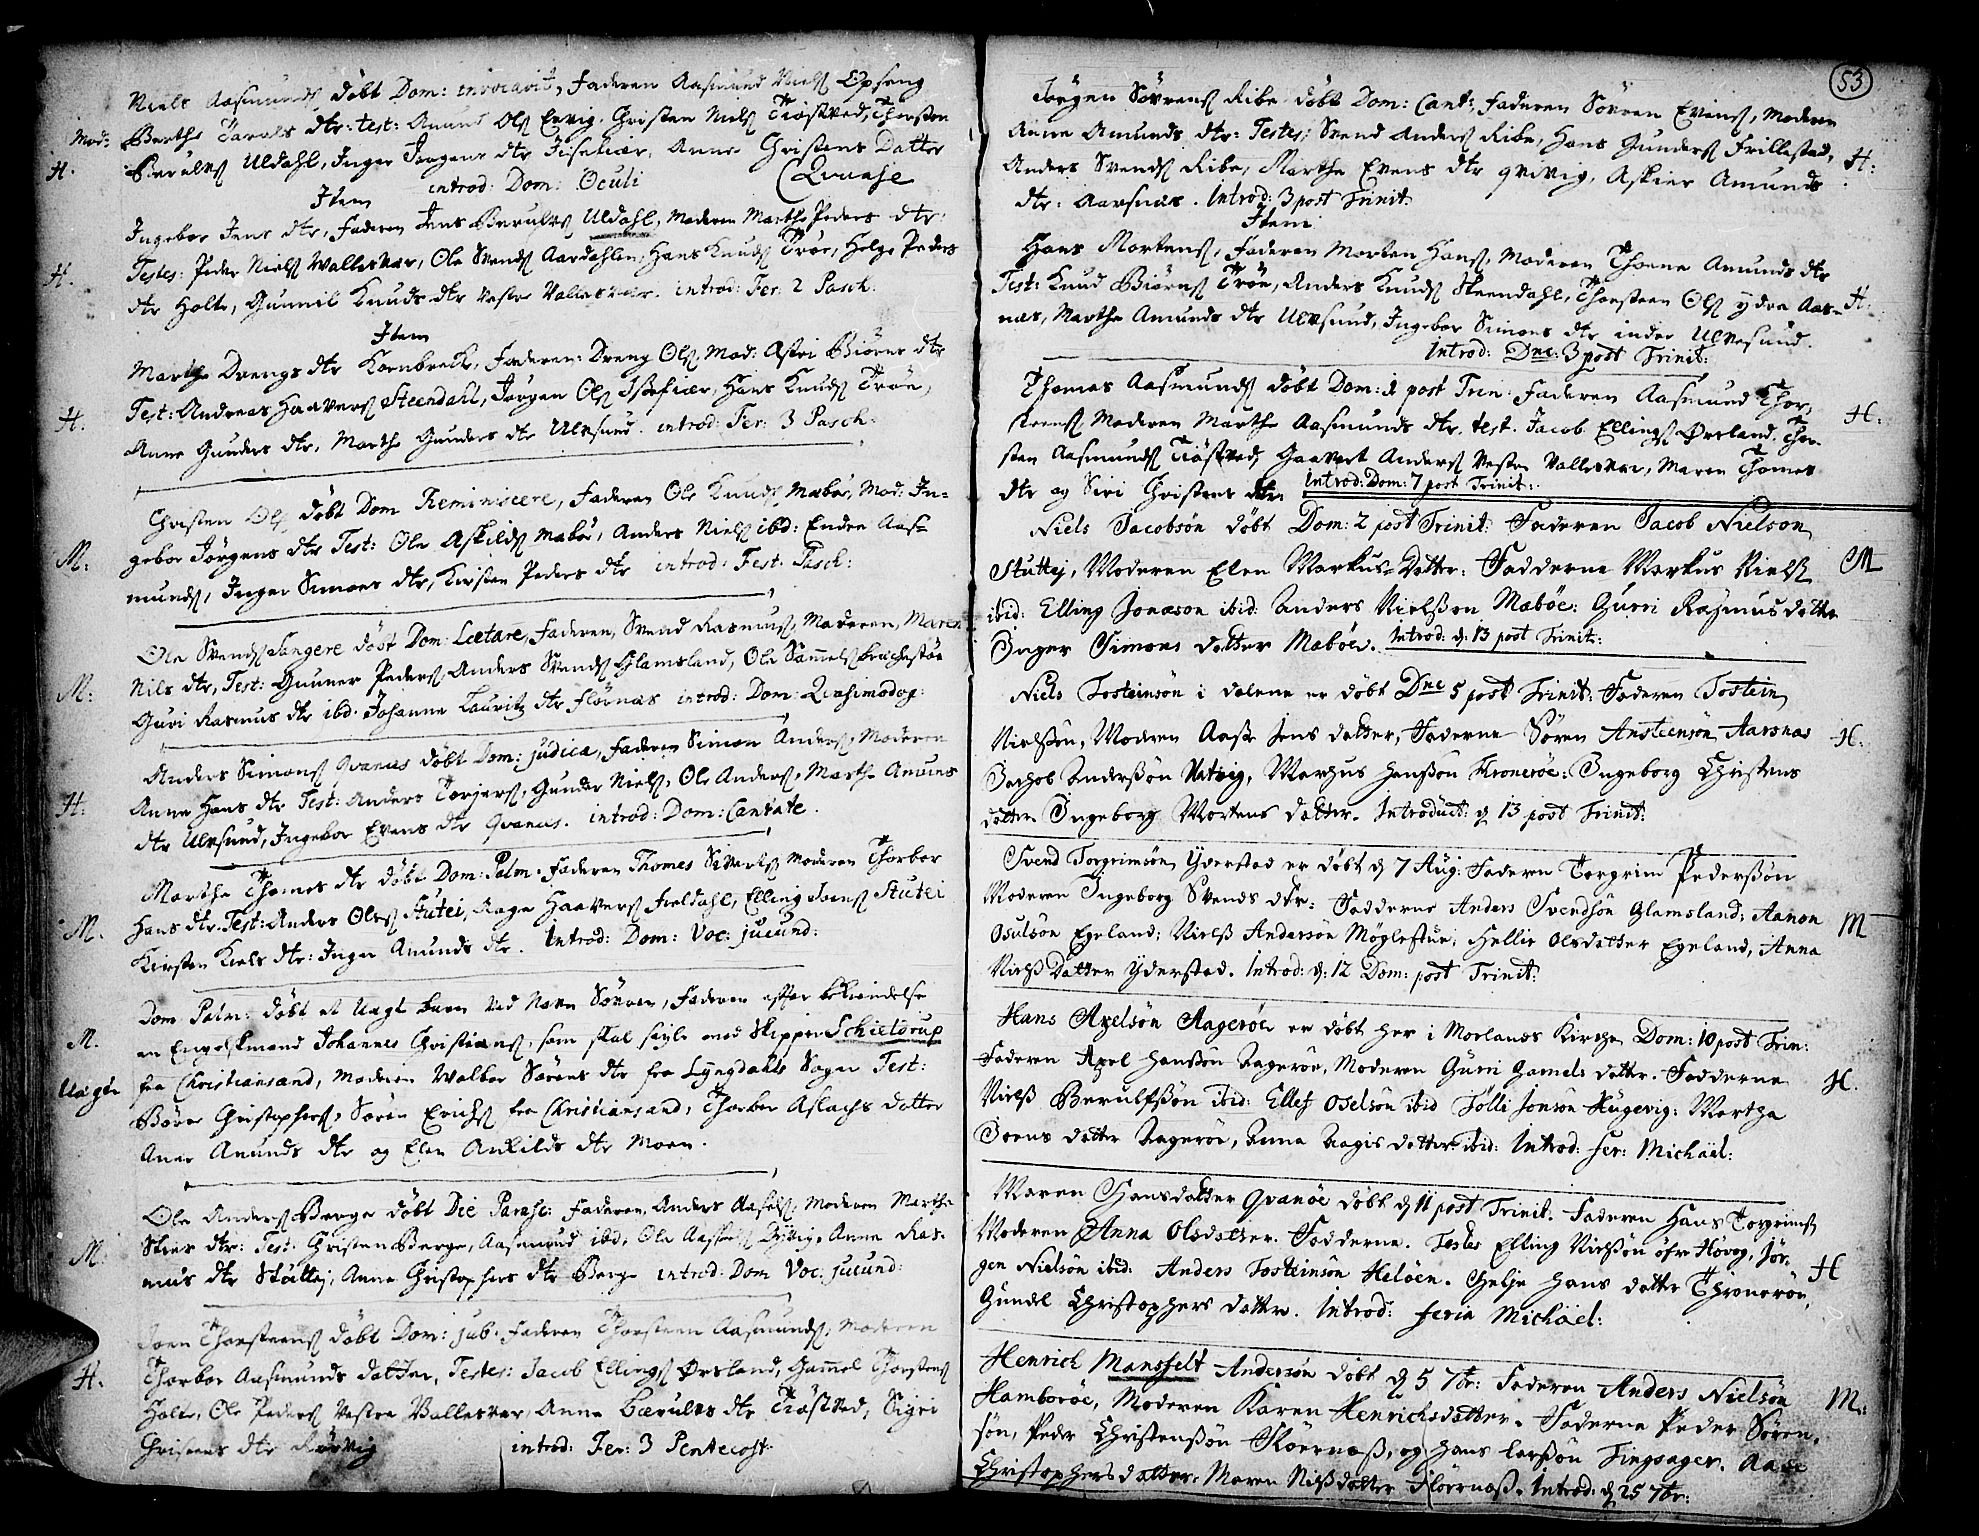 Niels Aasmunds døbt Dom: invocavit, Faderen Aasmund Niels Opseng
Mod: Berthe Taralds dtr: test: Amund Ols Qvig, Christen Niels Trøstved, Thorsten
H. Berulvs Uldahl, Inger Jørgens dtr Anne Christens Datter
introd: Dom: Oculi (Qvaase
Item
Ingebor Jens dtr, Faderen Jens Berulvs Uldahl, Moderen Marthe Peders dtr.
H. Testes: Peder Niels Vallesvær, Ole Svends Aardahlen, Hans Knuds Trøe, Helge Peders
dtr Holte, Gunnil Knuds dtr Vestre Vallesvær. introd: Fer: 2 Pasch.
Item
Marthe Drengs dtr Kornbreck, Faderen: Dreng Ols, Mod: Astri Biørns dtr
H. Test: Andreas Haavers Steendahl, Jørgen Ols Hans Knuds Trøe,
Anne Gunders dtr, Marthe Gunders dtr Ulvsund. introd: Fer: 3 Pasch.
Christen Ols døbt Dom Reminiscere, Faderen Ole Knuds Mæbøe, Mod: In-
M. gebor Jørgens dtr Test: Ole Askilds Mæbøe, Anders Niels ibd: Endre Aas-
munds, Inger Simons dtr, Kirsten Peders dtr introd: Fest: Pasch:
Ole Svends Langere døbt Dom: Lætare, Faderen, Svend Rasmus, Moderen, Maren
M. Nils dtr, Test: Gunner Peders, Anders Svends Glamsland, Ole Samuels
Guri Rasmus dtr ibd. Johanne Lauritz dtr Flørnæs introd: Dom: Qvasimodog:
Anders Simons Qvanes døbt Dom: judica, Faderen Simon Anders, Moderen
H. Anne Hans dtr Test: Anders Torjers, Gunder Niels, Ole Anders, Marthe Amuns
dtr Ulvsund, Ingebor Evens dtr Qvanes. introd: Dom: Cantate.
Marthe Thomes dtr døbt Dom: Palm: Faderen Thomes Sivers Moderen Thorbor
M. Hans dtr. Test: Anders Ols Stutei, Aage Haavers Fieldahl, Elling Joens Stutei
Kirsten Niels dtr: Inger Amunds dtr. Introd: Dom: Voc: jucund:
Dom Palm: døbt et Uægt barn ved Navn Sørren, Faderen efter bekiendelse
M. en Engelskmand Johannes Christians, som skal seyle med Skipper Schieltorup
Uægte fra Christiansand, Moderen Walbor Sørens dtr fra Lyngdahls Sogn Test:
Børre Christophers, Søren Erichs fra Christiansand, Thorbor Aslachs datter
Anne Amunds dtr og Elen Anfilds dtr Moen.
Ole Anders Berge døbt Die Parasc: Faderen, Anders Moderen Marthe
M. dtr: Test: Christen Berge, Aasmund ibd, Ole Anne Ras-
mus dtr Støttej, Anne Christophers dtr Berge introd: Dom Voc: jucund:
Joen Thorsteens døbt Dom: jub: Faderen Thorsteen Aasmunds, Moderen
H. Thorbor Aasmunds datter, Testes: Jacob Ellings Ørsland, Gammel Thorstens
Holte, Ole Peders Vestre Vallesver, Anne Berulvs dtr Trøstved, Sigri
Christens dtr Kørvig introd: Fer: 3 Pentecost:
53
Jørgen Sørens Ribe døbt Dom: Cant: Faderen Sørren Evens, Moderen
Anne Amunds dtr: Testes: Svend Anders Ribe, Hans Gunders Frillestad,
Anders Svends Ribe, Marthe Evens dtr Qvivig, Askier Amunds H:
dtr: Aarsnæs. Introd: 3 post Trinit:
Item
Hans Mortens, Faderen Morten Hans, Moderen Thorne Amunds dtr
Test: Knud Biørns Trøe, Anders Knuds Steendahl, Thorsteen Ols ydre Aas- H.
næs, Marthe Amunds dtr Ulvsund, Ingebor Simons dtr indre Ulvesund.
Introd: Dne: 3 post Trinit:
Thomas Aasmunds døbt Dom: 1 post Trin: Faderen Aasmund Thor,
steens Moderen Marthe Aasmunds dtr, test. Jacob Ellings Ørsland, Thor- H.
sten Aasmunds Trøstved, Gaavert Anders Vestre Vallesvær, Maren Thomes
dtr og Siri Christens dtr. Introd: Dom: 7 post Trinit:
Niels Jacobsøn døbt Dom: 2 post Trinit: Faderen Jacob Nielson
Stuttej, Moderen Elen Markus-Datter: Fadderne Markus Niels M
ibid: Elling Jonæson ibid: Anders Nielssøn Mæbøe: Gurri Rasmusdatter
Inger Simons datter Mæbøe. Introd: d: 13 post Trinit:
Niels Tosteinsøn i dalene er døbt Dne 5 post Trinit: Faderen Tostein
Nielssøn, Moderen Aasse Jens datter, Faderne Søren Ansteensøn Aarsnæs H.
Jachob Anderssøn Natvig, Marhus Hanssøn Kronerøe: Ingeborg Christens
datter Ingeborg Mortens datter. Introduct: d 13 post Trinit:
Svend Torgrimsøn Yderstad er døbt d 7 Aug: Faderen Torgrim Pederssøn
Moderen Ingeborg Svends dtr: Fadderne Anders Svendsøn Glamsland; Aanon M
Osulsøn Egeland; Nielss Andersøn Møglestue; Hellie Olsdatter Egeland, Anna
Nielss Datter Yderstad. Introd: d: 12 Dom: post Trinit:
Hans Axelsøn Aagerøe er døbt her i Morlands Kirche Dom: 10 post Trin:
Faderen Axel Hanssøn Aagerøe, Moderen Gurri Gamels datter. Fadderne H.
Nielss Berulfssøn ibid: Ellef Oselsøn ibid Tølli Jonsøn Hugevig: Martha
Joens datter Aagerøe, Anna Aagis datter ibid: Introd: fer: Michael:
Maren Hansdatter Qvanøe døbt d 11 post Trinit. Faderen Hans Torgrims
Moderen Anna Olsdatter. Fadderne. Testes Elling Nielssøn øfre Høvog, Jør-
gen Nielsøn ibid: Anders Tosteinsøn Heløen. Helje Hans datter Thronerøe, H
Gundel Christophers datter. Introd: feria Michael:
Henrich Mansfelt Andersøn døbt d 5 7br: Faderen Anders Nielsøn
Hamborøe, Moderen Karen Henrichsdatter. Faderne Peder Søren- M.
søn, Peder Christenssøn Fløernæss, og Hans Larssøn Tingsager. Aase
Christophersdatter: Maren Nilssdatter Fløernæss. Introd: d 25 7br: